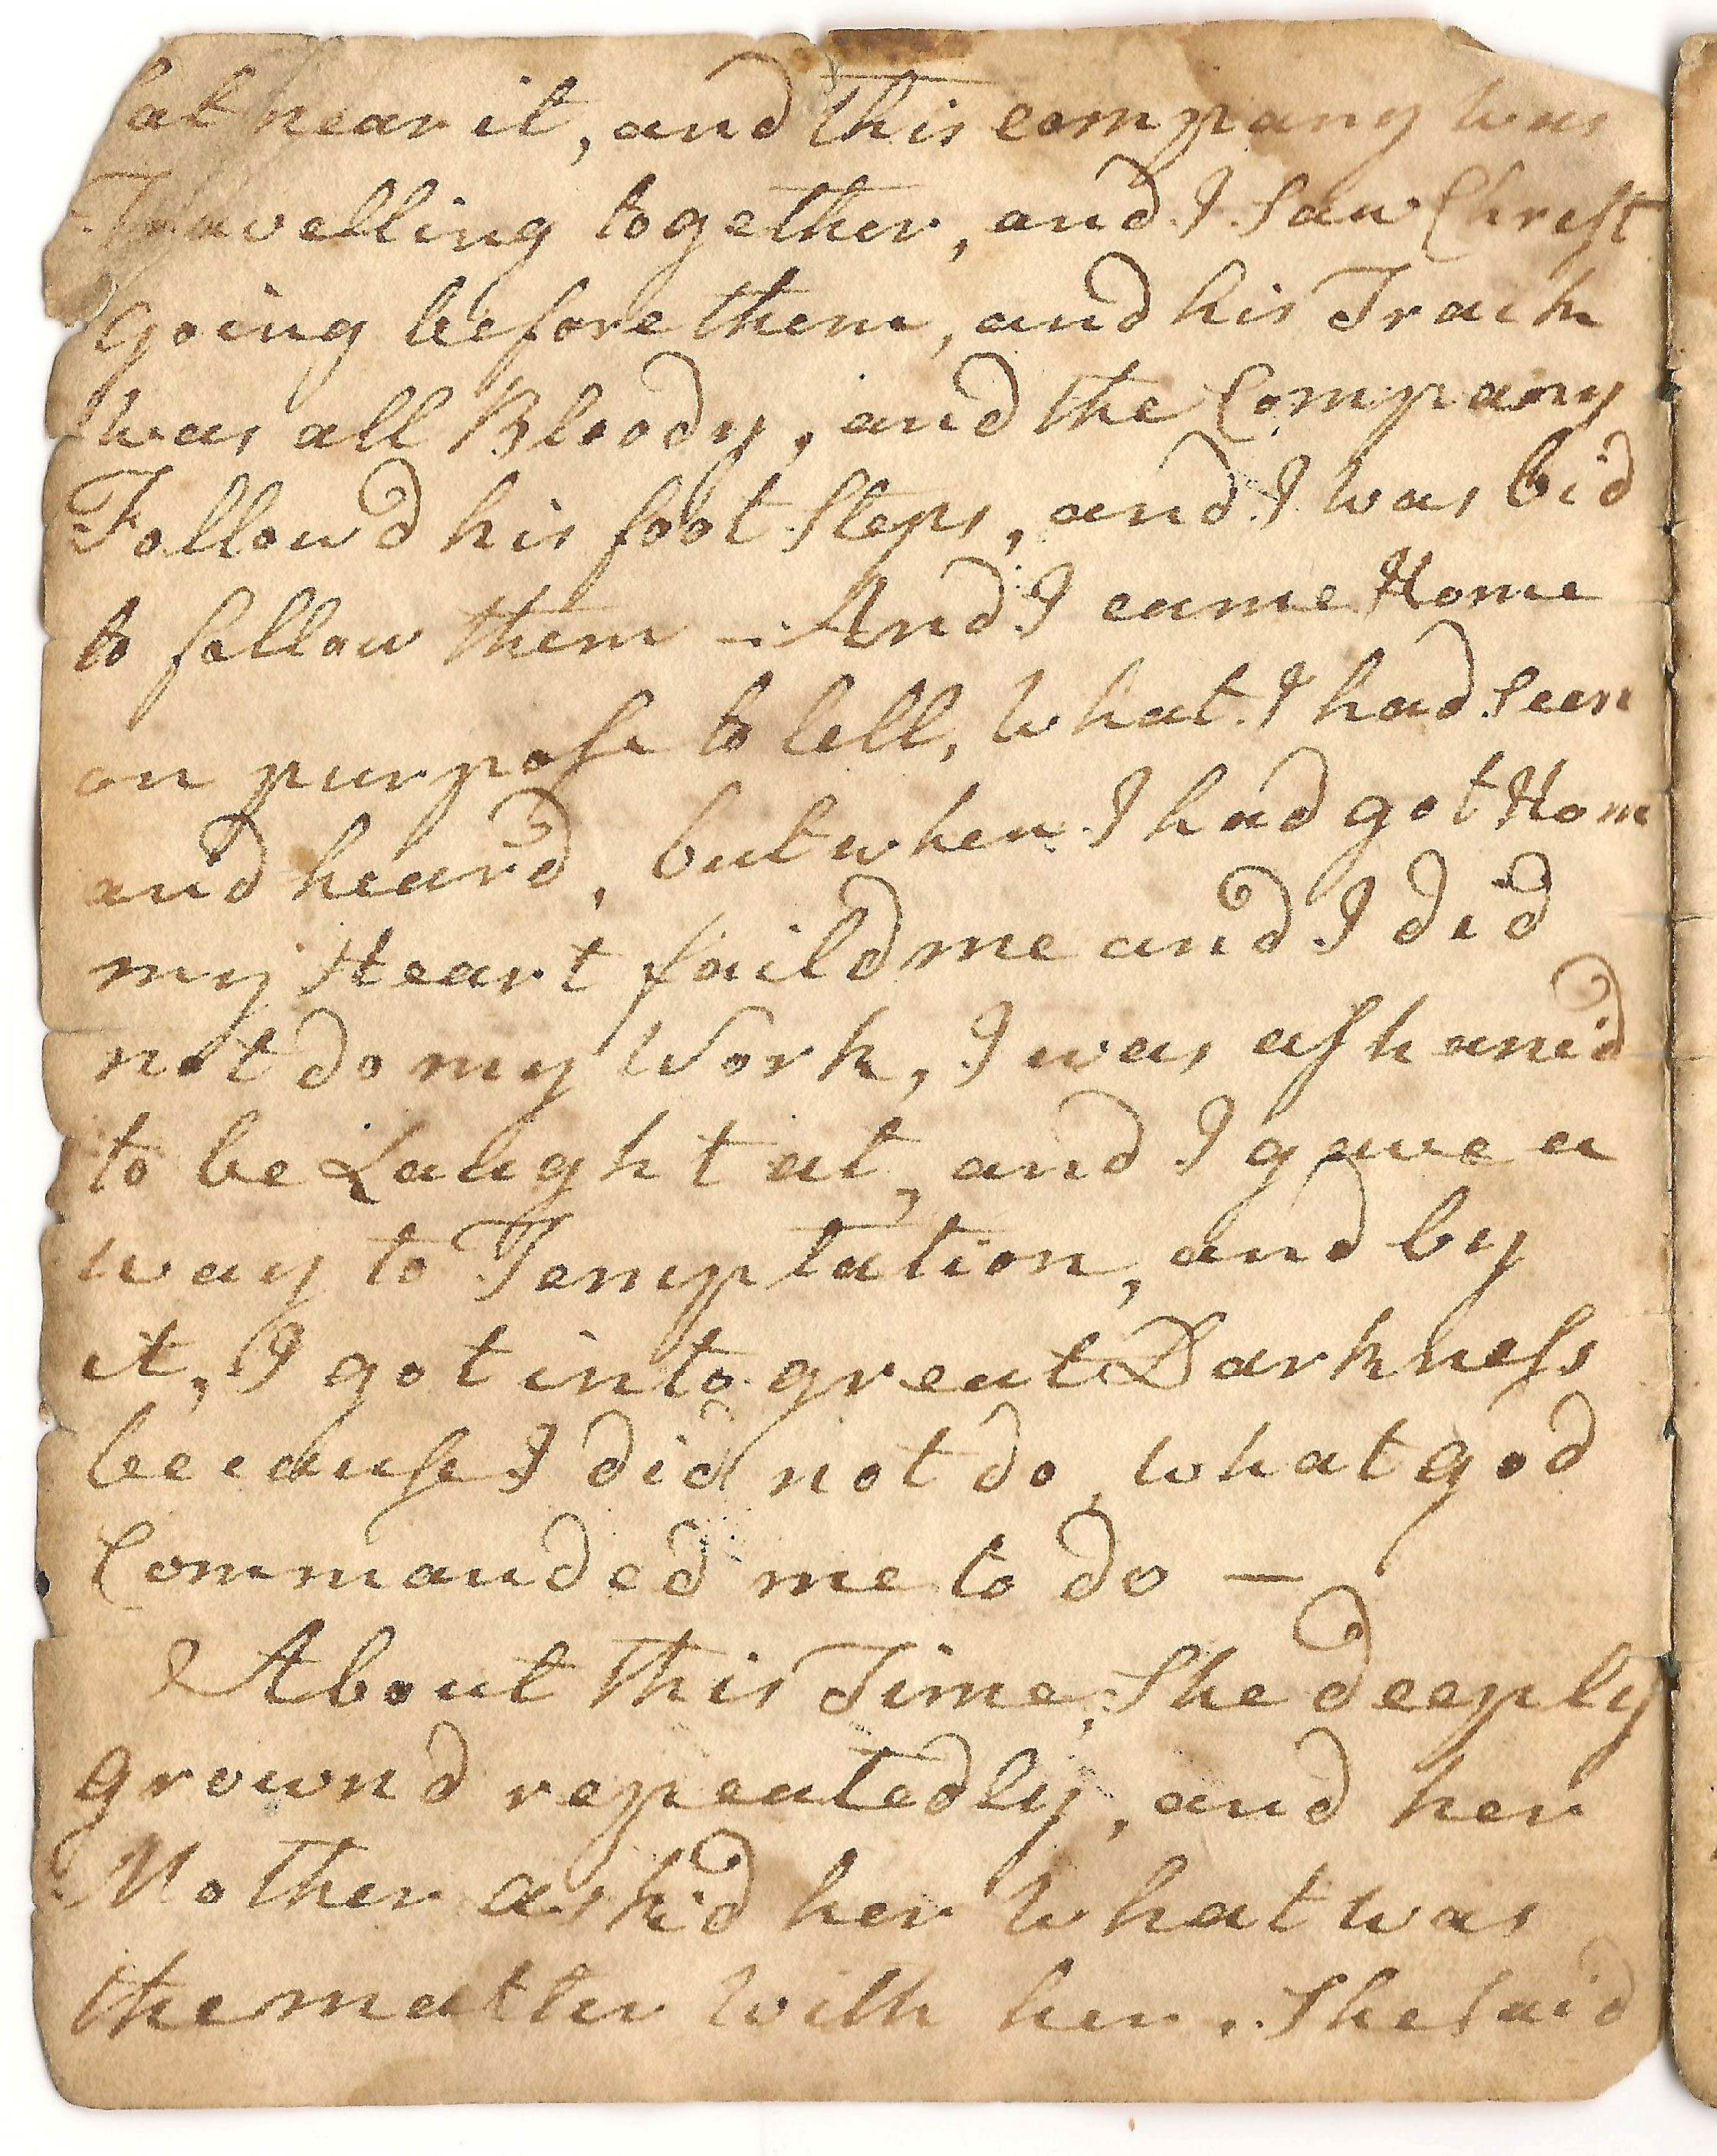 Sat near it, and this company was
Travelling together, and I Saw Christ
going before them, and his Track
was all Bloody, and the Company
Follow'd his foot Steps, and I was bid
to follow them – And I came Home
on purpose to tell, what I had Seen
and heard, but when I had got Home
my Heart faild me and I did
not do my Work, I was ashamd
to be Laught at, and I gave a
way to Temptation, and by
it, I got into great Darkness
because I did not do, what god
Commanded me to do —
About this Time, She deeply
grownd repeatedly, and her
Mother ask'd her what was
the matter with her. She Said